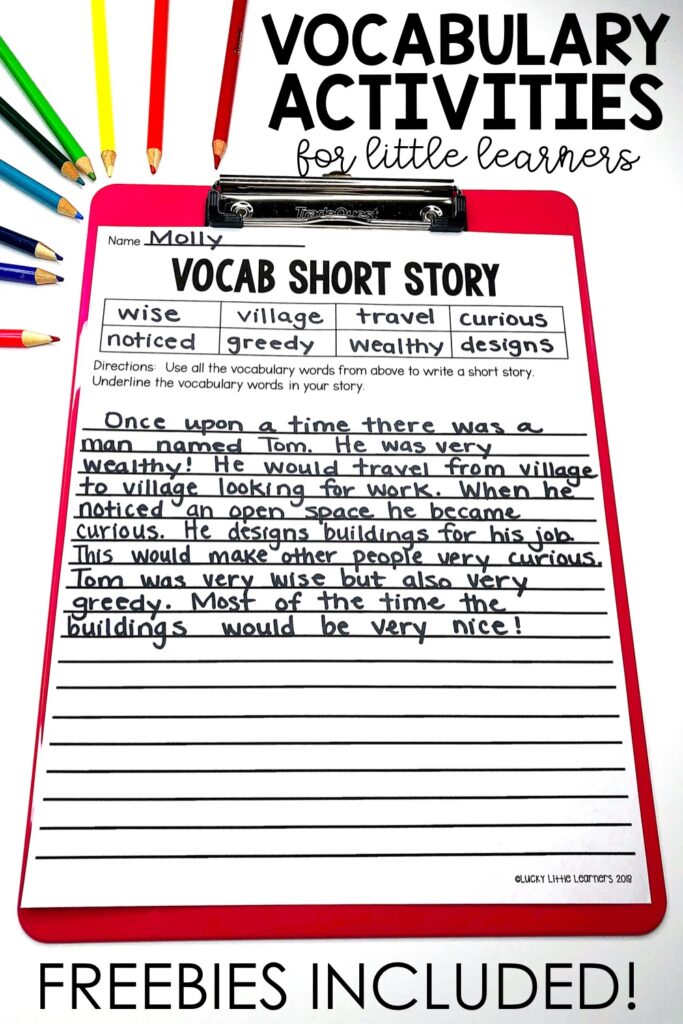 VOCABULARY
ACTIVITIES
for little learners
TradeQuest
Name Molly
VOCAB SHORT STORY
wise village travel curious
noticed greedy wealthy designs
Directions: Use all the vocabulary words from above to write a short story.
Underline the vocabulary words in your story.
Once upon a time there was a
man named Tom. He was very
wealthy! He would travel from village
to village looking for work. When he
noticed an open space he became
curious. He designs buildings for his job.
This would make other people very curious.
Tom was very wise but also very
greedy. Most of the time the
buildings would be very nice!
©Lucky Little Learners 2018
FREEBIES INCLUDED!